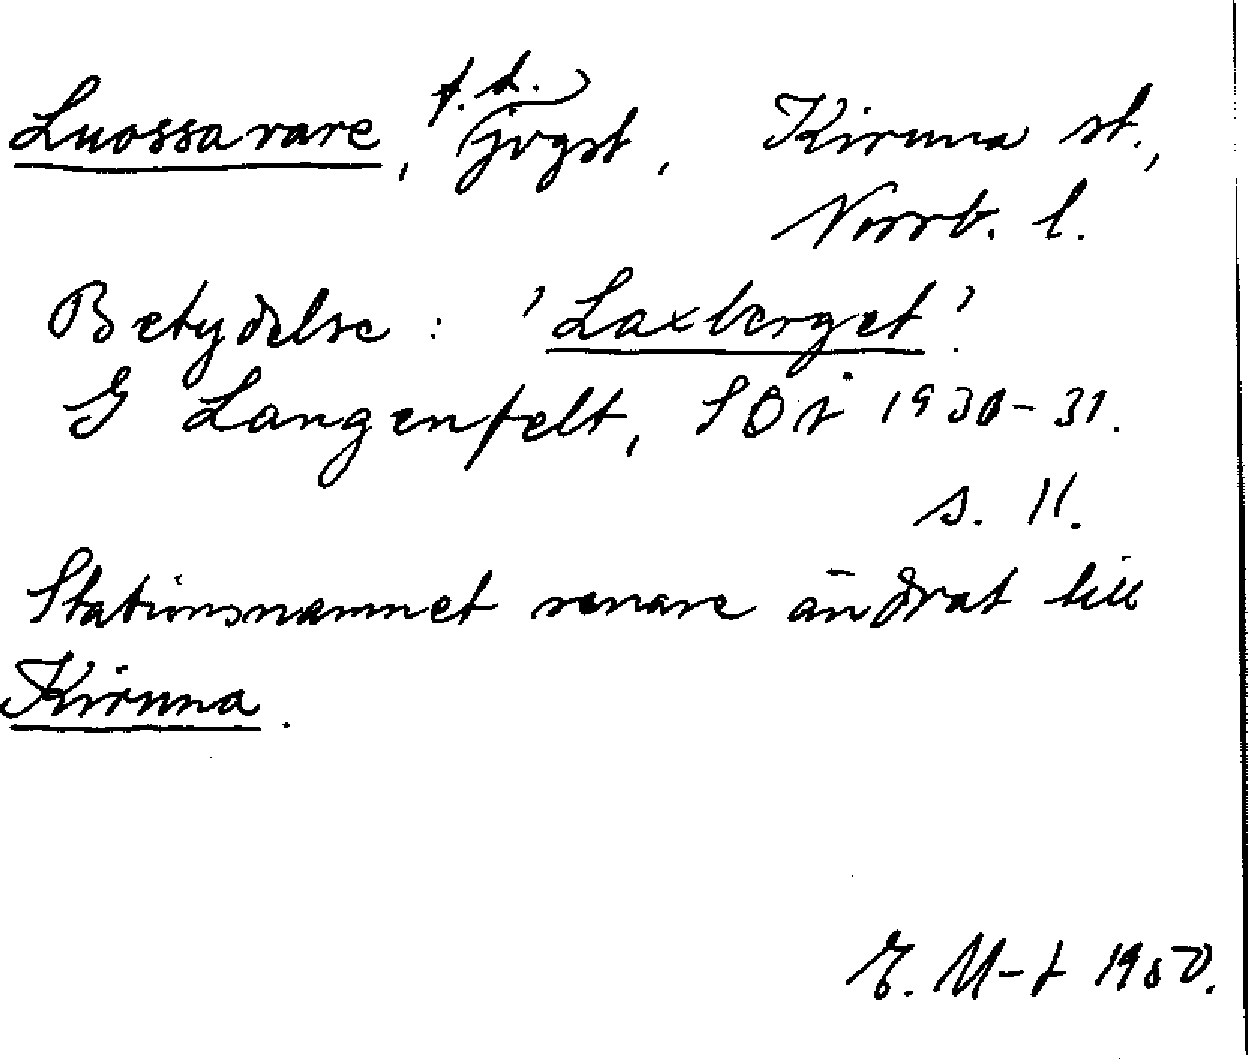 Luossavare, f.d. jvgst, Kiruna st.,
Norrb. l.
Betydelse: 'Laxberget'.
G Langenfelt, SOÅ 1930-31.
s. 11.
Stationsnamnet senare ändrat till
Kiruna.
E. M-t 1950.